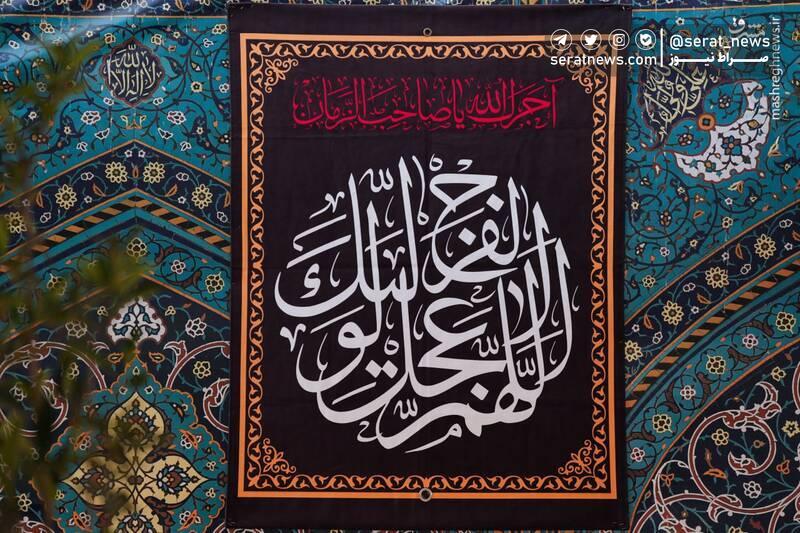 @serat_news
seratnews.com صراط نیوز
mashreghnews.ir
لا اله الا الله
آجرک الله یا صاحب الزمان
اللهم عجل لولیک الفرج